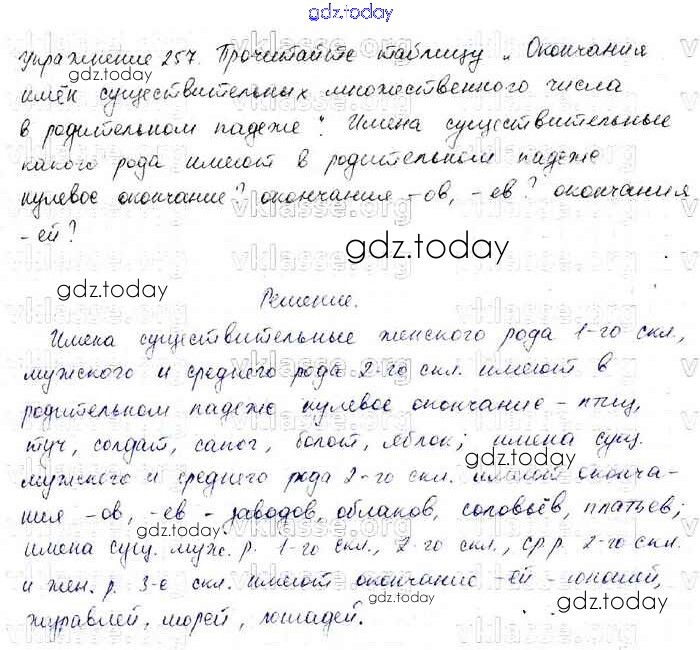 gdz.today
Упражнение 257. Прочитайте таблицу „Окончания
имён существительных множественного числа
в родительном падеже". Имена существительные
какого рода имеют в родительном падеже
нулевое окончание? окончания -ов, -ев? окончания
-ей?
gdz.today
gdz.today
Решение.
Имена существительные женского рода 1-го скл.,
мужского и среднего рода 2-го скл. имеют в
родительном падеже нулевое окончание - птиц,
туч, солдат, сапог, болот, яблок; имена сущ.
мужского и среднего рода 2-го скл. имеют оконча-
ния -ов, -ев - заводов, облаков, соловьёв, платьев;
имена сущ. муж. р. 1-го скл., 2-го скл., ср.р. 2-го скл.
и жен. р. 3-е скл. имеют окончание -ей - юношей,
журавлей, морей, лошадей.
gdz.today
gdz.today
gdz.today
gdz.today
gdz.today
gdz.today
vklasse.org
vklasse.org